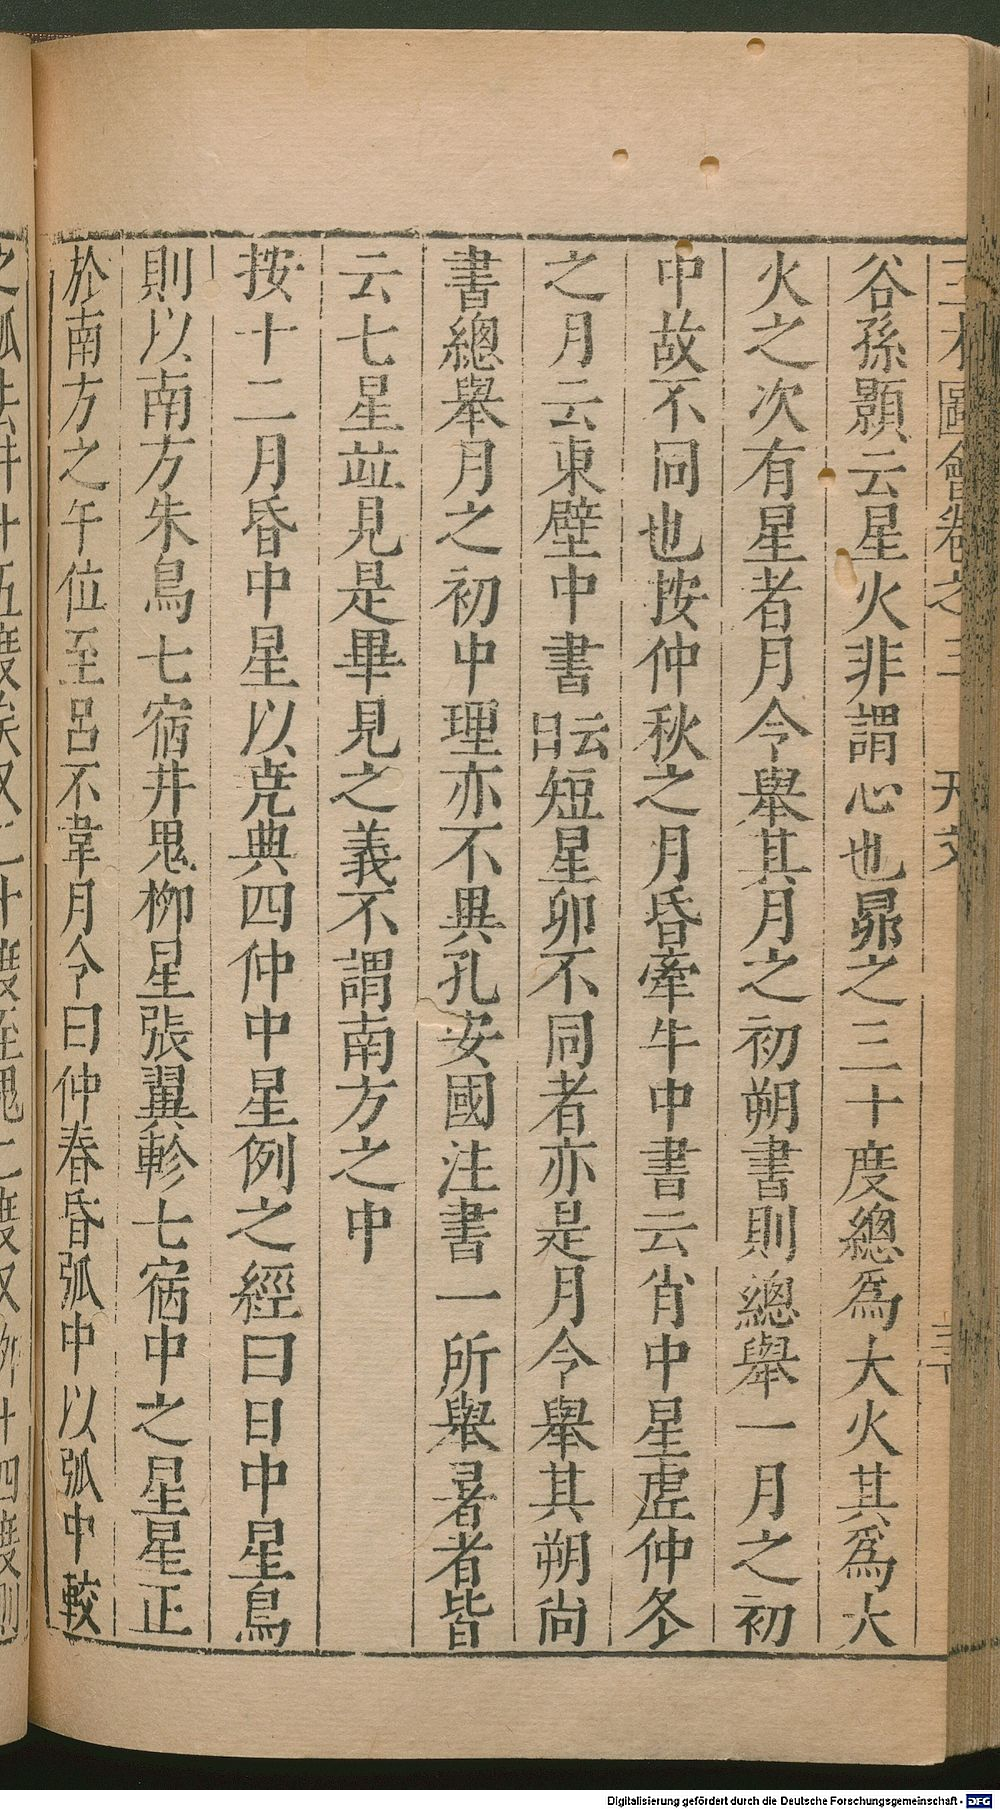 三才圖會卷之三 天文
谷孫顥云星火非謂心也昴之三十度總爲大火其爲大
火之次有星者月令舉其月之初朔書則總舉一月之初
中故不同也按仲秋之月昏牽牛中書云宵中星虛仲冬
之月云東壁中書云日短星卯不同者亦是月令舉其朔尚
書總舉月之初中理亦不異孔安國注書一所舉暑者皆
云七星並見是畢見之義不謂南方之中
按十二月昏中星以堯典四仲中星例之經曰日中星鳥
則以南方朱鳥七宿井鬼柳星張翼軫七宿中之星星正
於南方之午位至呂不韋月令曰仲春昏弧中以弧中較
之弧去井十五度
Digitalisierung gefördert durch die Deutsche Forschungsgemeinschaft - DFG